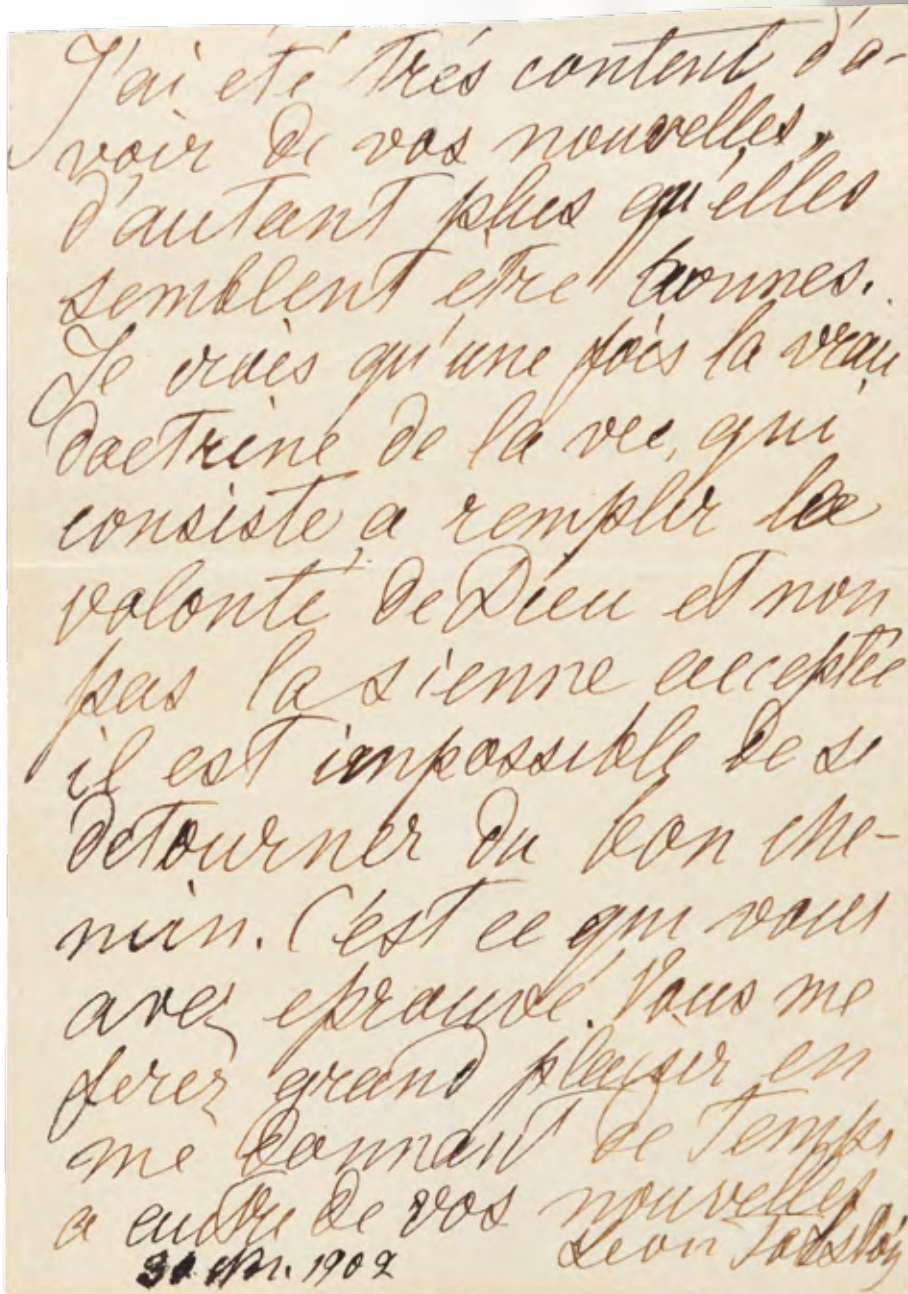 J'ai été très content d'a-
voir de vos nouvelles,
d'autant plus qu'elles
semblent etre bonnes.
Je crois qu'une fois la vrai
doctrine de la vie, qui
consiste a remplir la
volonté de Dieu et non
pas la sienne acceptée
il est impossible de se
detourner du bon che-
min. C'est ce qui vous
avez eprouvé. Vous me
ferez grand plaisir en
me donnant de Temps
a autre de vos nouvelles
Leon Tolstoy
1902